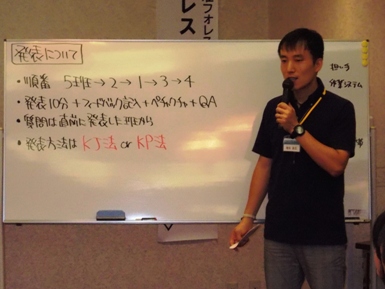 フォレス
レス
発表について
・順番 5班→2→1→3→4
・発表10分+フィードバック記入+ペチャクチャ+QA
・質問は直前に発表した班から
・発表方法は KJ法 or KP法
担い手
システム